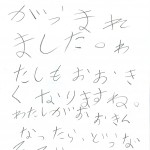 がうまれて
ました。わ
たしもおおき
くなりますね。
わたしがおおきん
なったら、どうな